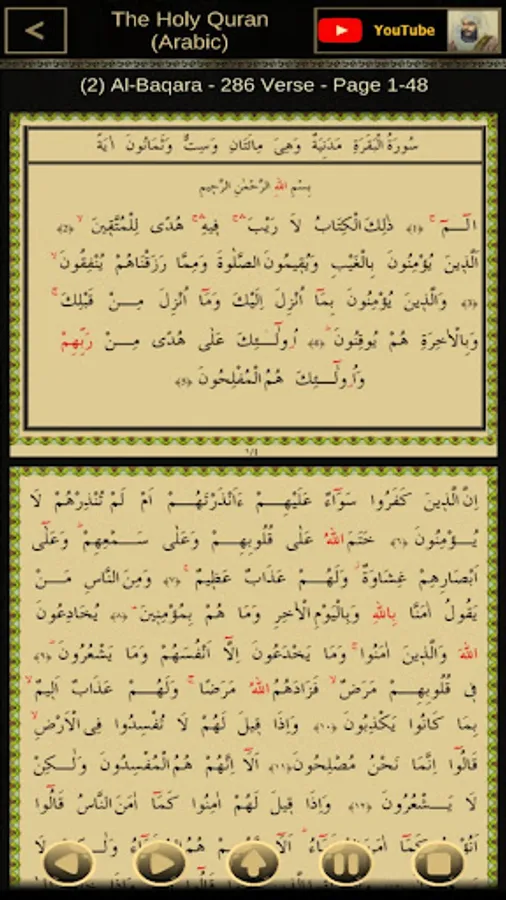 <
The Holy Quran
(Arabic)
YouTube
(2) Al-Baqara - 286 Verse - Page 1-48
سُورَةُ الْبَقَرَةِ مَدَنِيَّةٌ وَهِىَ مِائَتَانِ وَسِتٌّ وَثَمَانُونَ اٰيَةً
بِسْمِ اللهِ الرَّحْمٰنِ الرَّحِيمِ
الٓـمٓ ۚ ﴿1﴾ ذٰلِكَ الْكِتَابُ لَا رَيْبَ ۚۛ فِيهِ ۚۛ هُدًى لِلْمُتَّقِينَ ۙ ﴿2﴾
اَلَّذِينَ يُؤْمِنُونَ بِالْغَيْبِ وَيُقِيمُونَ الصَّلٰوةَ وَمِمَّا رَزَقْنَاهُمْ يُنْفِقُونَ ۙ
﴿3﴾ وَالَّذِينَ يُؤْمِنُونَ بِمَٓا اُنْزِلَ اِلَيْكَ وَمَٓا اُنْزِلَ مِـنْ قَبْلِكَ ۚ
وَبِالْاٰخِرَةِ هُمْ يُوقِنُونَ ۜ ﴿4﴾ اُو۬لٰٓـئِكَ عَلٰى هُدًى مِـنْ رَبِّهِمْ
وَاُو۬لٰٓـئِكَ هُمُ الْمُفْلِحُونَ ﴿5﴾
اِنَّ الَّذِينَ كَفَرُوا سَوَٓاءٌ عَلَيْهِـمْ ءَاَنْذَرْتَهُـمْ اَمْ لَمْ تُنْذِرْهُمْ لَا
يُـؤْمِنُونَ ﴿٦﴾ خَتَمَ اللهُ عَلٰى قُلُوبِهِـمْ وَعَلٰى سَـمْعِهِمْ ۜ وَعَلٰٓى
اَبْصَارِهِمْ غِشَاوَةٌ ۘ وَلَهُـمْ عَذَابٌ عَظِيمٌ ۟ ﴿٧﴾ وَمِنَ النَّاسِ مَـنْ
يَقُولُ اٰمَنَّا بِاللهِ وَبِالْيَوْمِ الْاٰخِرِ وَمَا هُمْ بِمُؤْمِنِينَ ۢ ﴿٨﴾ يُخَادِعُونَ
اللهَ وَالَّذِينَ اٰمَنُوا ۚ وَمَا يَخْدَعُونَ اِلَّٓا اَنْفُسَهُمْ وَمَا يَشْعُرُونَ ۜ ﴿٩﴾
فِى قُلُوبِهِـمْ مَرَضٌ ۙ فَزَادَهُمُ اللهُ مَرَضًا ۚ وَلَهُـمْ عَذَابٌ اَلِيمٌ ۙ
بِمَا كَانُوا يَكْذِبُونَ ﴿١٠﴾ وَاِذَا قِيلَ لَهُمْ لَا تُفْسِدُوا فِى الْاَرْضِ ۙ
قَالُٓوا اِنَّمَا نَحْنُ مُصْلِحُونَ ﴿١١﴾ اَلَٓا اِنَّهُمْ هُمُ الْمُفْسِدُونَ وَلٰـكِنْ
لَا يَـشْعُرُونَ ﴿١٢﴾ وَاِذَا قِيلَ لَهُمْ اٰمِنُوا كَمَٓا اٰمَنَ النَّاسُ قَالُٓوا